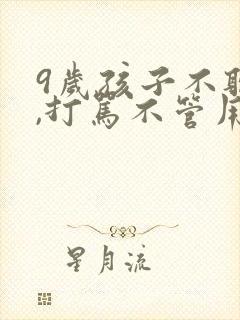 9歲孩子不
,打罵不管用
星月流